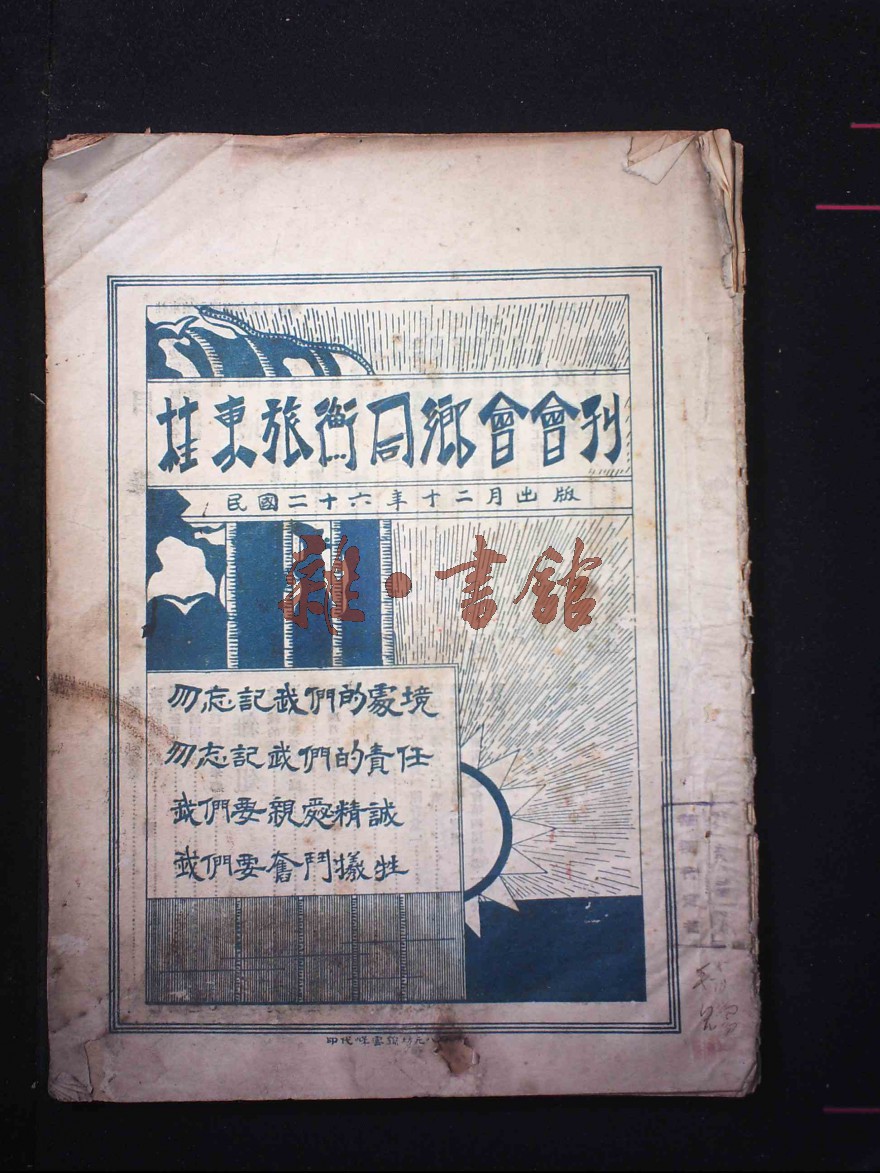 桂東旅衡同鄉會會刊
民國二十六年十二月出版
雜·書館
勿忘記我們的處境
勿忘記我們的責任
我們要親愛精誠
我們要奮鬥犧牲